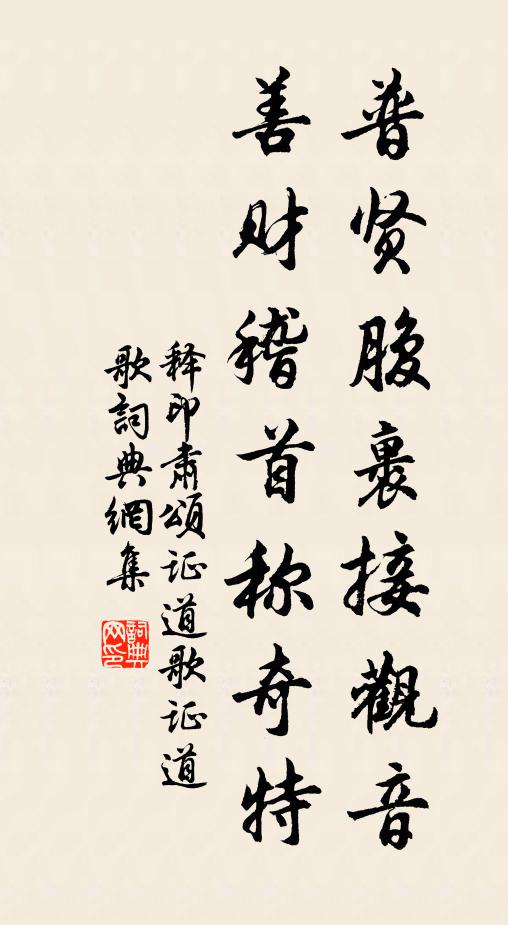 普贤腹裹接觀音
善财稽首称奇特
释印肃頌证道歌证道
歌詞典網集
詞典
网印